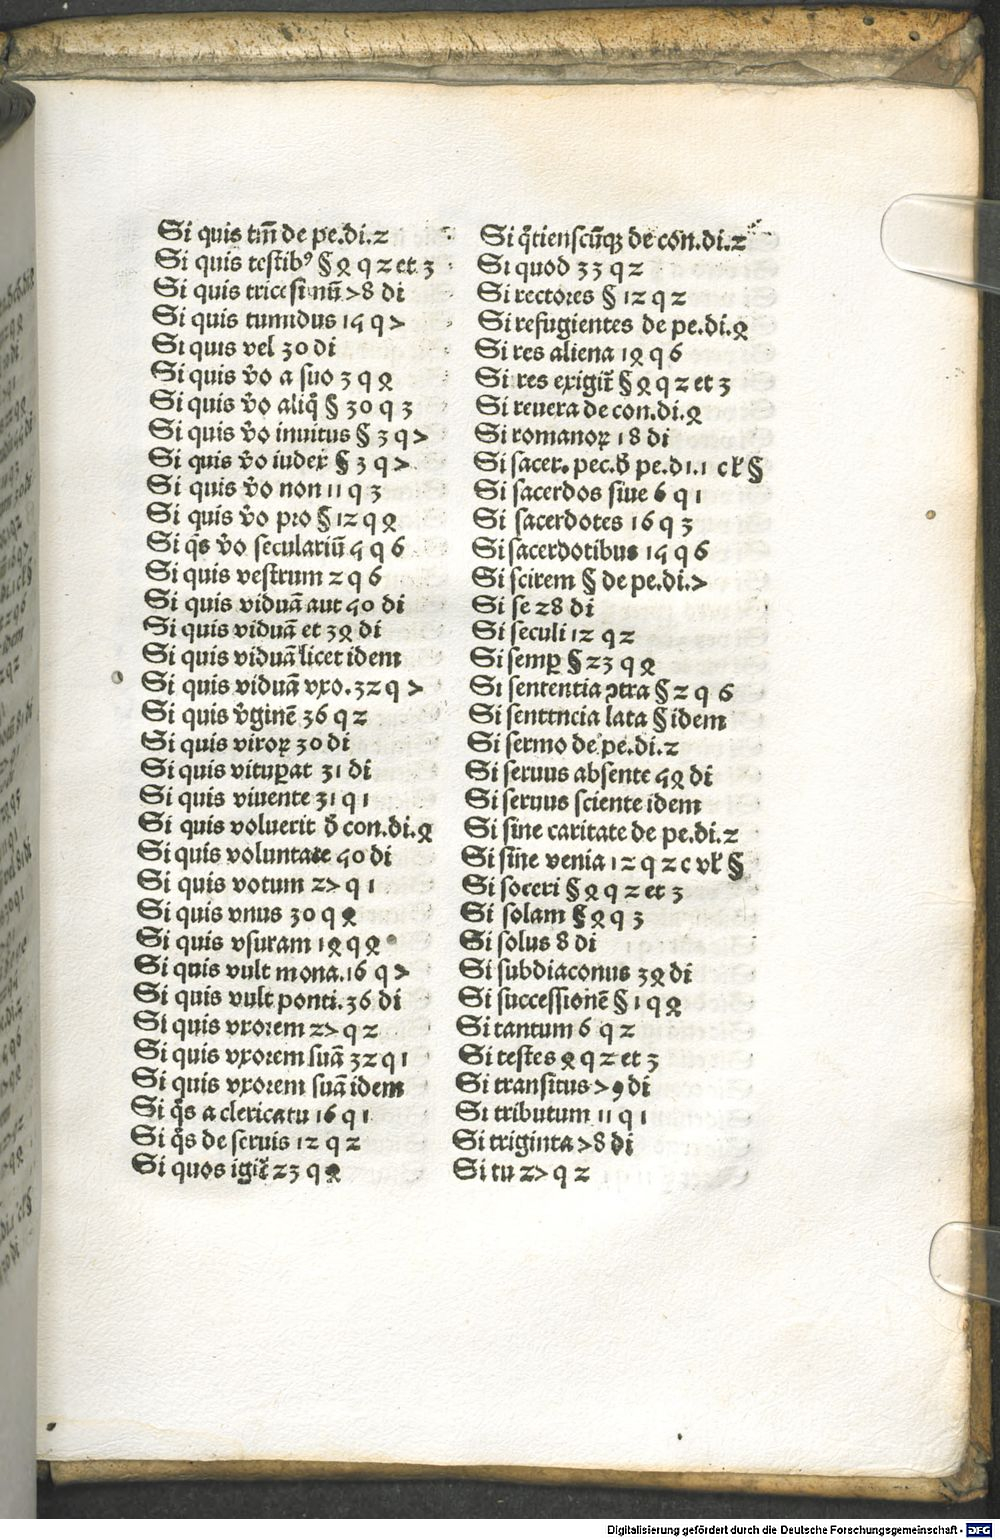 Si quis tm̄ de pe.di.2
Si quis testibꝰ § 4 q 2 et 3
Si quis tricesimū 78 di
Si quis tumidus 15 q 7
Si quis vel 30 di
Si quis v̄o a suo 3 q 4
Si quis v̄o aliq̄ § 30 q 3
Si quis v̄o inuitus § 3 q 7
Si quis v̄o iudex § 3 q 7
Si quis v̄o non 11 q 3
Si quis v̄o pro § 12 q 4
Si q̄s v̄o seculariū 5 q 6
Si quis vestrum 2 q 6
Si quis viduā aut 50 di
Si quis viduā et 34 di
Si quis viduā licet idem
Si quis viduā vxo.32 q 7
Si quis v̄ginē 36 q 2
Si quis viroꝝ 30 di
Si quis vituꝑat 31 di
Si quis viuente 31 q 1
Si quis voluerit d̄ con.di.4
Si quis voluntate 50 di
Si quis votum 27 q 1
Si quis vnus 30 q 4
Si quis vsuram 14 q 4
Si quis vult mona.16 q 7
Si quis vult ponti.36 di
Si quis vxorem 27 q 2
Si quis vxorem suā 32 q 1
Si quis vxorem suā idem
Si q̄s a clericatu 16 q 1
Si q̄s de seruis 12 q 2
Si quos igit̄ 23 q 4
Si q̄tienscūqꝫ de con.di.2
Si quod 33 q 2
Si rectores § 12 q 2
Si refugientes de pe.di.4
Si res aliena 14 q 6
Si res exigit̄ § 4 q 2 et 3
Si reuera de con.di.4
Si romanoꝝ 18 di
Si sacer. pec.d̄ pe.di.1 cł §
Si sacerdos siue 6 q 1
Si sacerdotes 16 q 3
Si sacerdotibus 15 q 6
Si scirem § de pe.di.7
Si se 28 di
Si seculi 12 q 2
Si semꝑ § 23 q 4
Si sententia ꝯtra § 2 q 6
Si sentencia lata § idem
Si sermo de pe.di.2
Si seruus absente 54 di
Si seruus sciente idem
Si sine caritate de pe.di.2
Si sine venia 12 q 2 c vł §
Si soceri § 4 q 2 et 3
Si solam § 4 q 3
Si solus 8 di
Si subdiaconus 34 di
Si successionē § 1 q 4
Si tantum 6 q 2
Si testes 4 q 2 et 3
Si transitus 79 di
Si tributum 11 q 1
Si triginta 78 di
Si tu 27 q 2
Digitalisierung gefördert durch die Deutsche Forschungsgemeinschaft - DFG